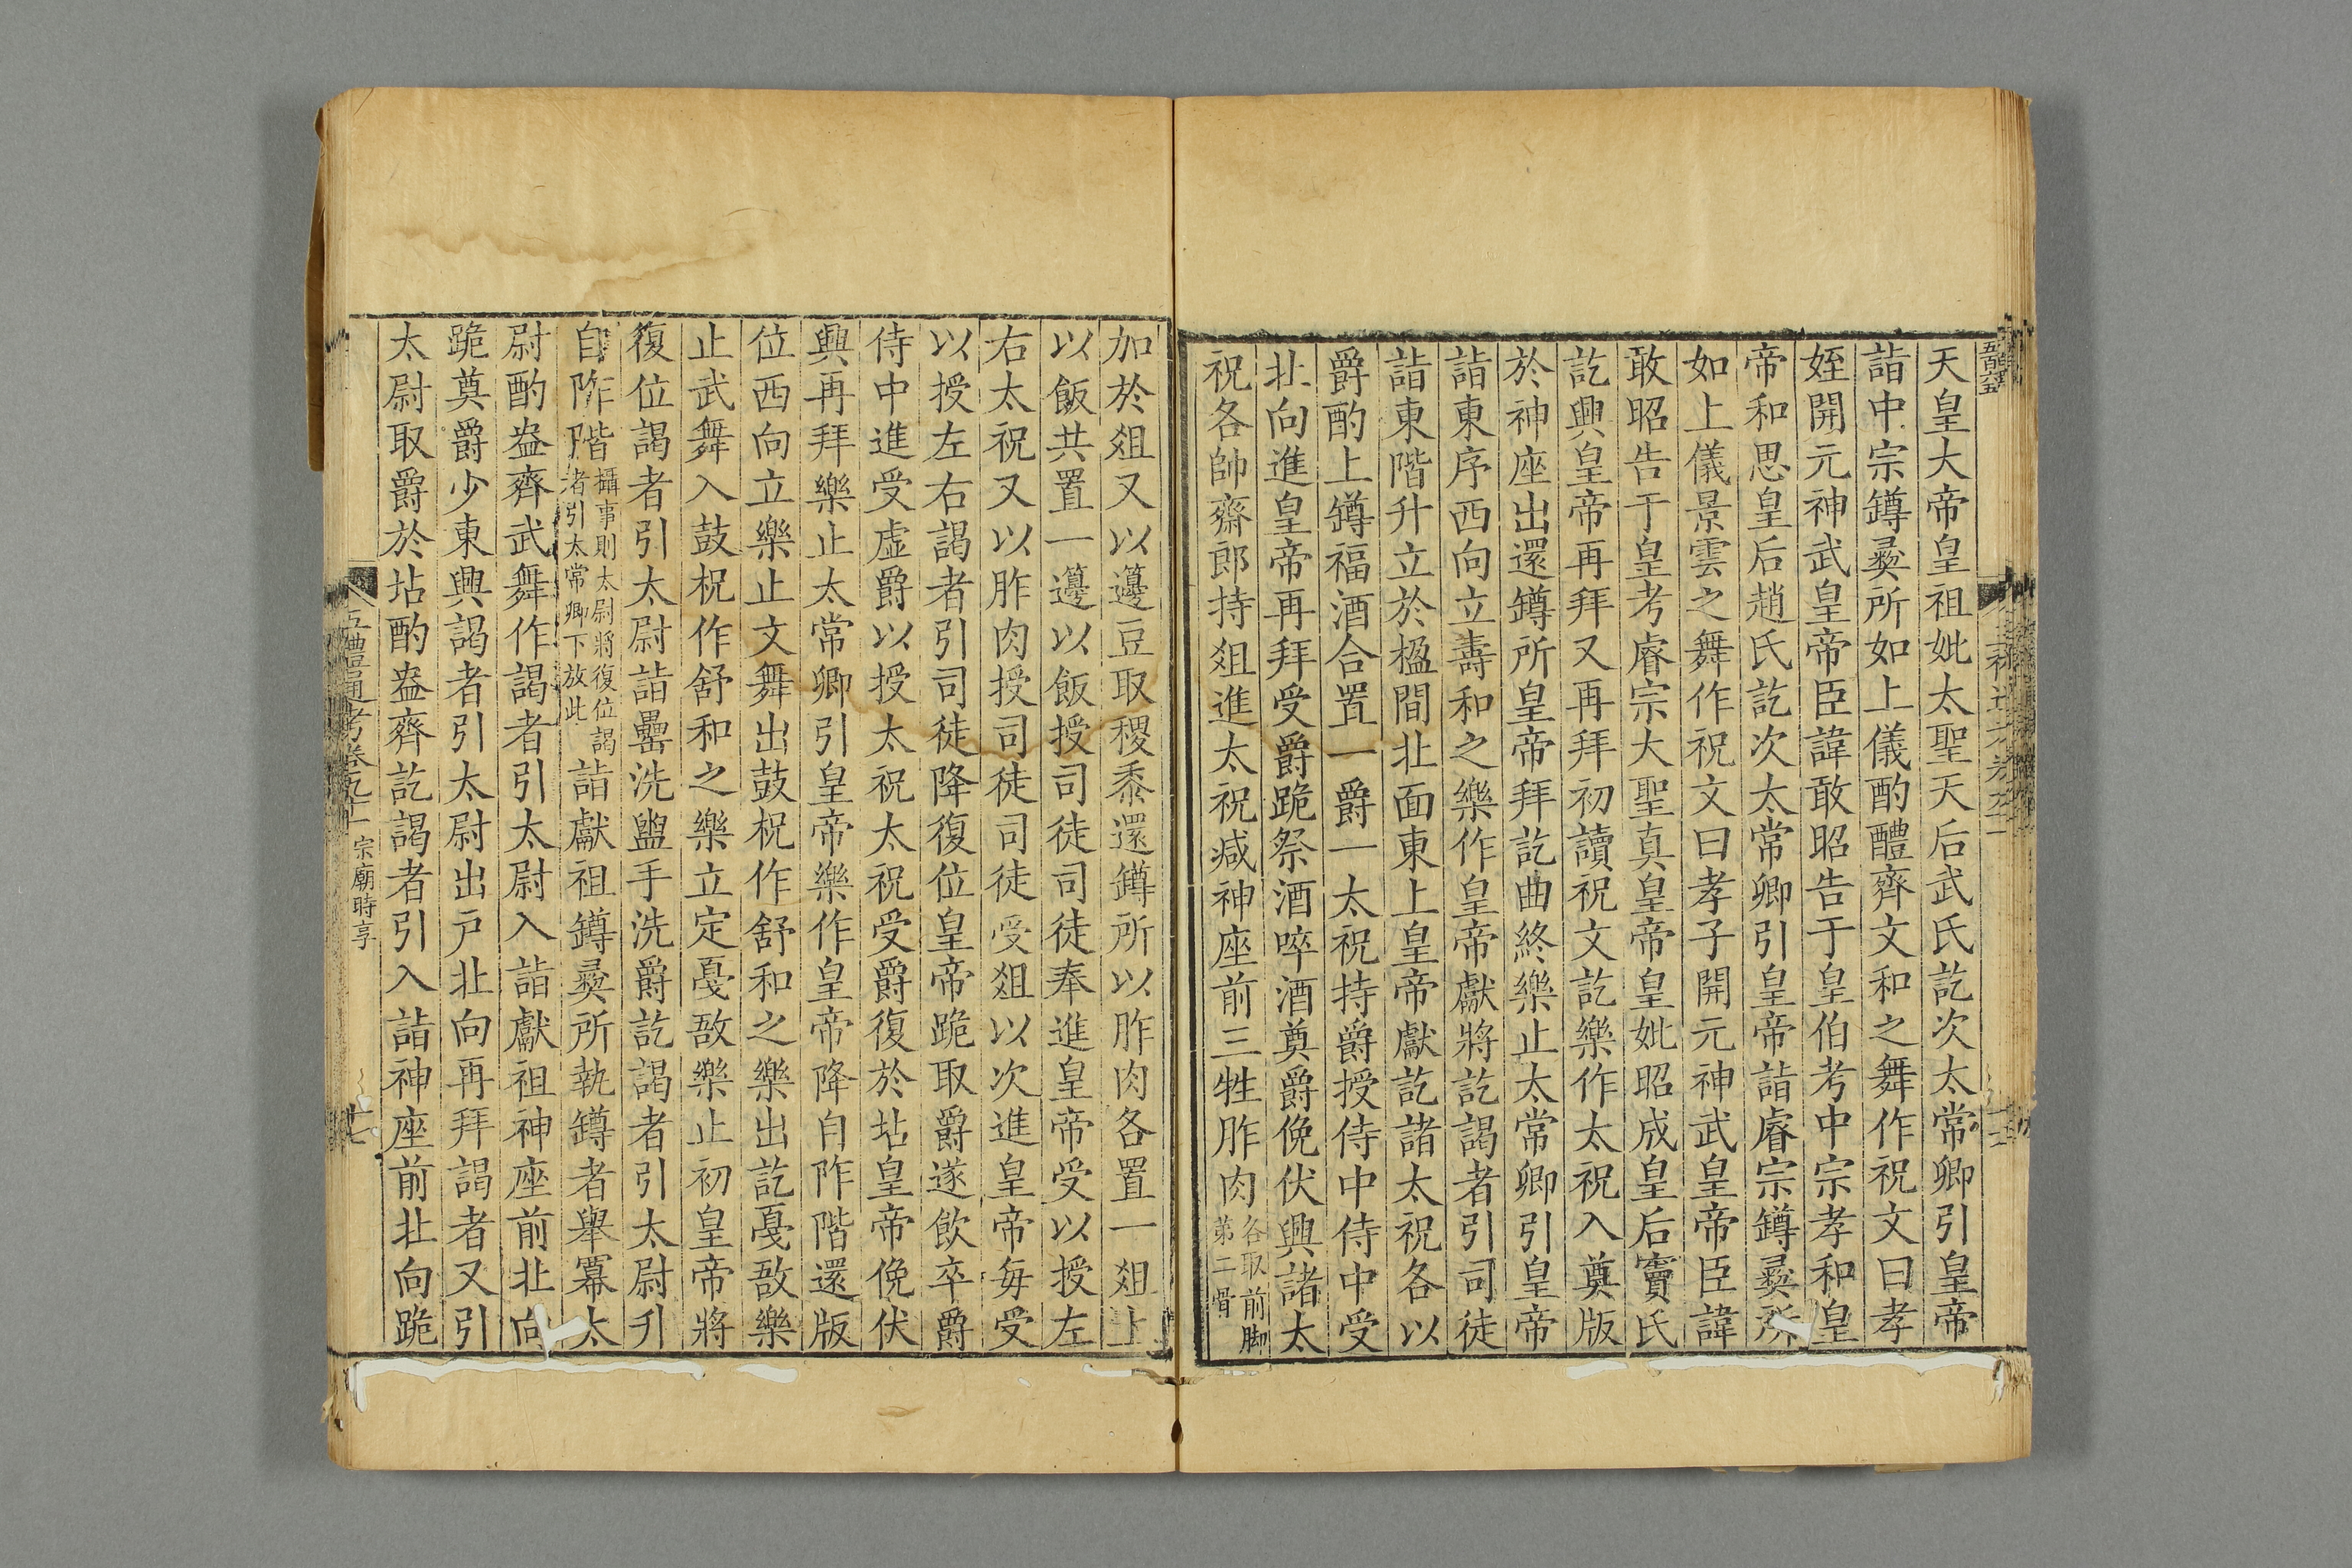 天皇大帝皇祖妣太聖天后武氏訖次太常卿引皇帝
詣中宗罇彝所如上儀酌醴齊文和之舞作祝文曰孝
姪開元神武皇帝臣諱敢昭告于皇伯考中宗孝和皇
帝和思皇后趙氏訖次太常卿引皇帝詣睿宗罇彝所
如上儀景雲之舞作祝文曰孝子開元神武皇帝臣諱
敢昭告于皇考睿宗大聖真皇帝皇妣昭成皇后竇氏
訖興皇帝再拜又再拜初讀祝文訖樂作太祝入奠版
於神座出還罇所皇帝拜訖曲終樂止太常卿引皇帝
詣東序西向立壽和之樂作皇帝獻將訖謁者引司徒
詣東階升立於楹間北面東上皇帝獻訖諸太祝各以
爵酌上罇福酒合置一爵一太祝持爵授侍中侍中受
北向進皇帝再拜受爵跪祭酒啐酒奠爵俛伏興諸太
祝各帥齋郎持俎進太祝減神座前三牲胙肉各取前脚第二骨
加於俎又以籩豆取稷黍還罇所以胙肉各置一俎上
以飯共置一籩以飯授司徒司徒奉進皇帝受以授左
右太祝又以胙肉授司徒司徒受俎以次進皇帝每受
以授左右謁者引司徒降復位皇帝跪取爵遂飲卒爵
侍中進受虛爵以授太祝太祝受爵復於坫皇帝俛伏
興再拜樂止太常卿引皇帝樂作皇帝降自阼階還版
位西向立樂止文舞出鼓柷作舒和之樂出訖戛敔樂
止武舞入鼓柷作舒和之樂立定戛敔樂止初皇帝將
復位謁者引太尉詣罍洗盥手洗爵訖謁者引太尉升
自阼階攝事則太尉將復位謁者引太常卿下放此詣獻祖罇彝所執罇者舉冪太
尉酌盎齊武舞作謁者引太尉入詣獻祖神座前北向
跪奠爵少東興謁者引太尉出戶北向再拜謁者又引
太尉取爵於坫酌盎齊訖謁者引入詣神座前北向跪
五禮通考卷九十一 宗廟時享